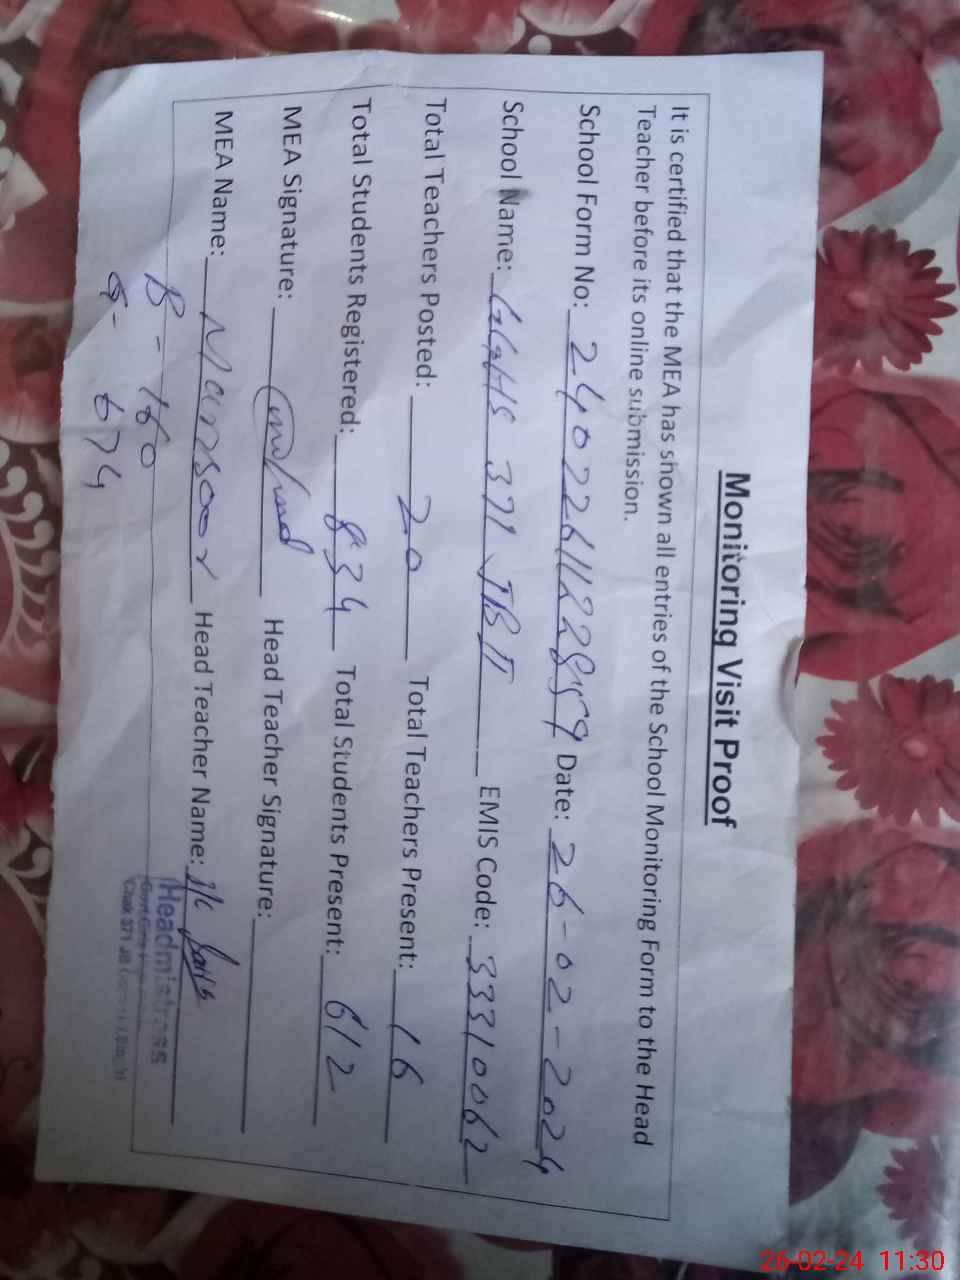 Monitoring Visit Proof
It is certified that the MEA has shown all entries of the School Monitoring Form to the Head
Teacher before its online submission.
School Form No: Date: 26-02-2024
School Name: GGHS 371 JB II EMIS Code: 33310062
Total Teachers Posted: 20 Total Teachers Present: 16
Total Students Registered: 834 Total Students Present: 612
MEA Signature: Head Teacher Signature:
MEA Name: Mansoor Head Teacher Name: I/C
B - 160
G - 674
Headmistress
Chak 371 JB
26-02-24 11:30